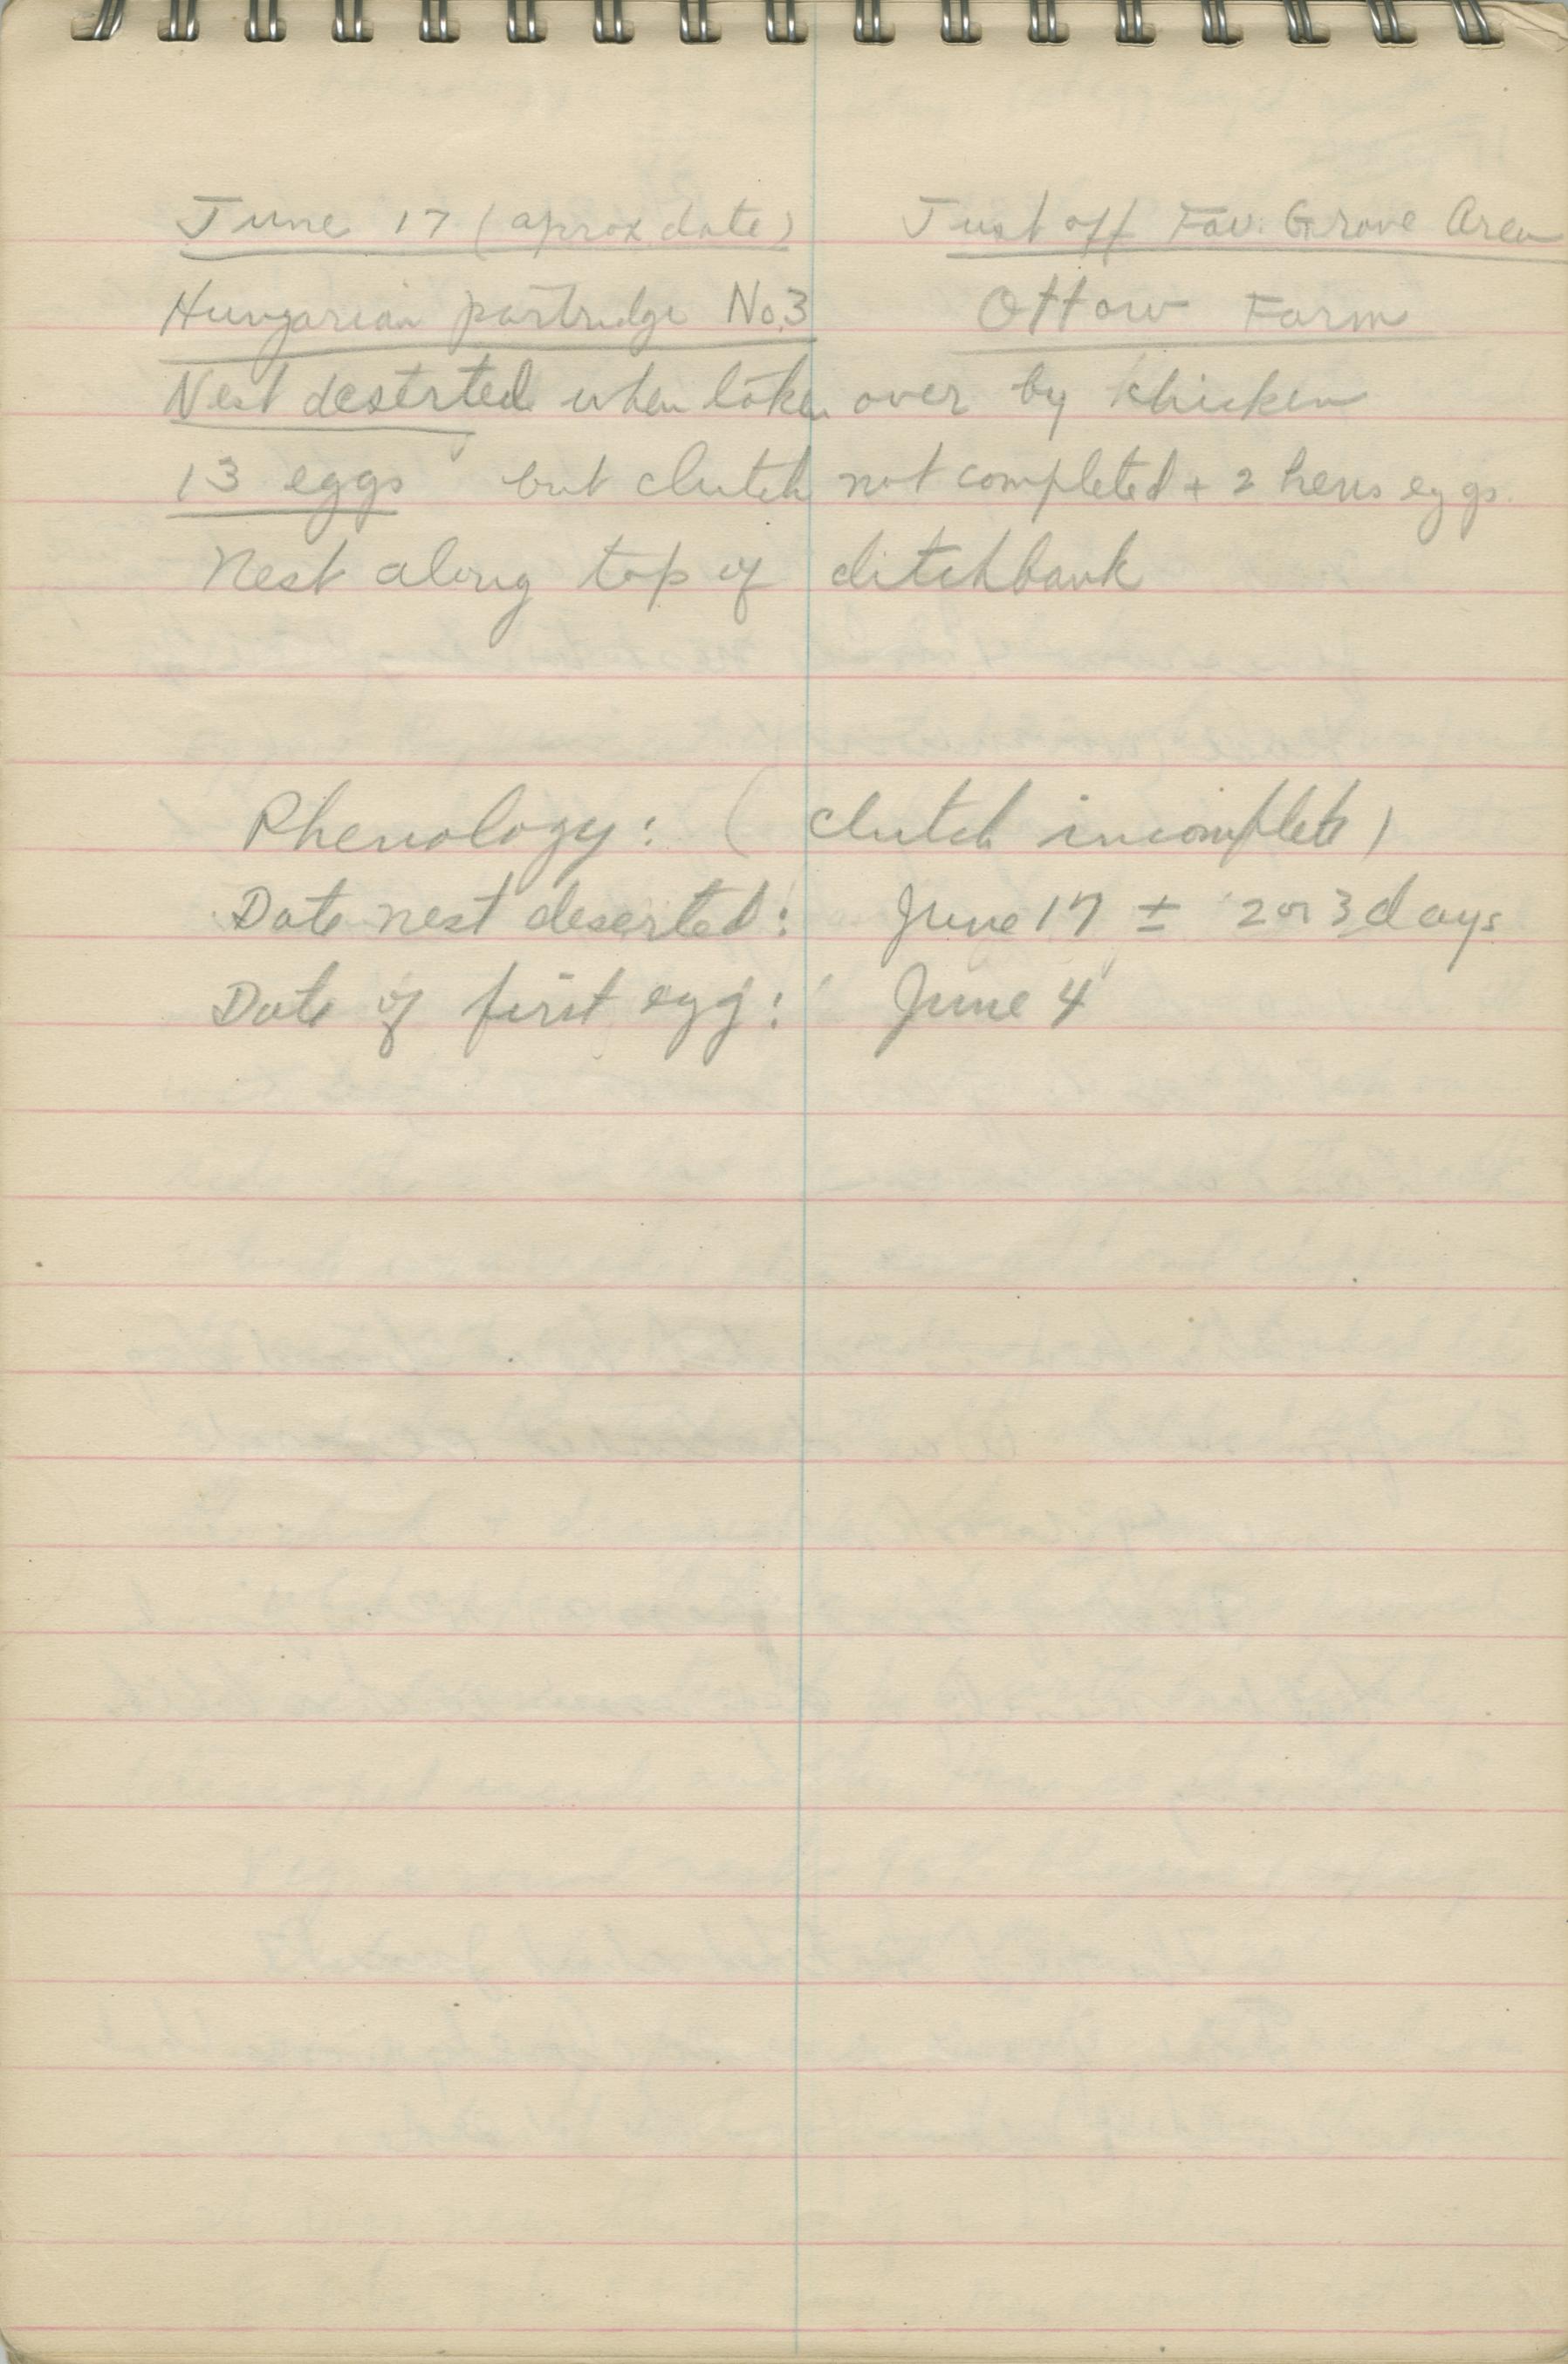 June 17 (aprox date) Just off Fav. Grove Area
Hungarian partridge No.3 Ottow Farm
Nest deserted when taken over by chicken
13 eggs but clutch not completed + 2 hens eggs.
Nest along top of ditchbank
Phenology: (clutch incomplete)
Date nest deserted: June 17 ± 2 or 3 days
Date of first egg: June 4